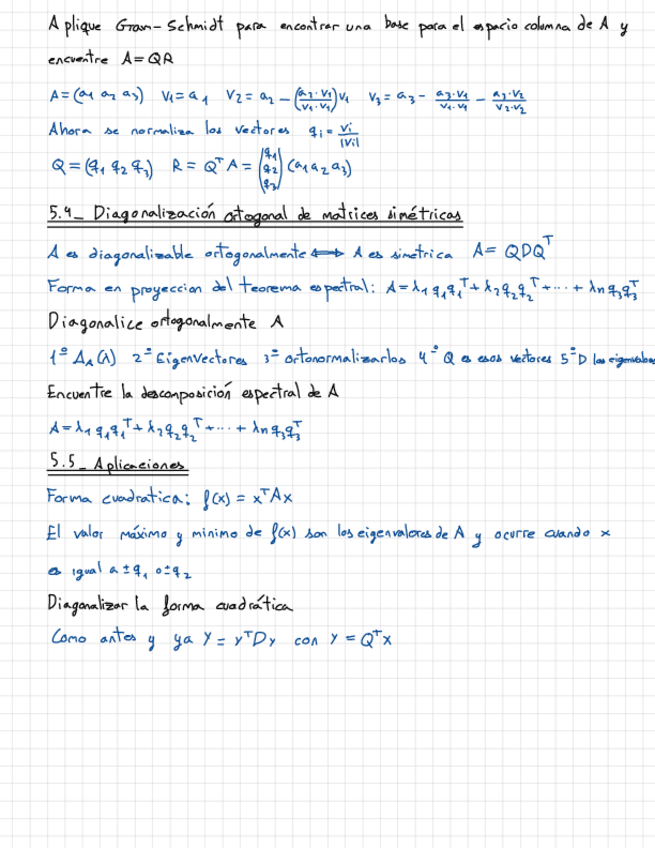 Aplique Gram-Schmidt para encontrar una base para el espacio columna de A y
encuentre A = QR
A = (a₁ a₂ a₃) v₁ = a₁ v₂ = a₂ - (a₂·v₁/v₁·v₁)v₁ v₃ = a₃ - a₃·v₁/v₁·v₁ - a₃·v₂/v₂·v₂
Ahora se normaliza los vectores qᵢ = vᵢ/|vᵢ|
Q = (q₁ q₂ q₃) R = QᵀA = (q₁ q₂ q₃) (a₁ a₂ a₃)
5.4_ Diagonalización ortogonal de matrices simétricas
A es diagonalizable ortogonalmente ⟺ A es simetrica A = QDQᵀ
Forma en proyeccion del teorema espectral: A = λ₁q₁q₁ᵀ + λ₂q₂q₂ᵀ + ··· + λn q₃q₃ᵀ
Diagonalice ortogonalmente A
1º Δ_A(λ) 2º Eigenvectores 3º ortonormalizarlos 4º Q es esos vectores 5º D los eigenvalores
Encuentre la descomposición espectral de A
A = λ₁q₁q₁ᵀ + λ₂q₂q₂ᵀ + ··· + λn q₃q₃ᵀ
5.5_ Aplicaciones
Forma cuadratica: f(x) = xᵀAx
El valor máximo y minimo de f(x) son los eigenvalores de A y ocurre cuando x
es igual a ±q₁ o ±q₂
Diagonalizar la forma cuadrática
Como antes y ya Y = yᵀDy con y = Qᵀx